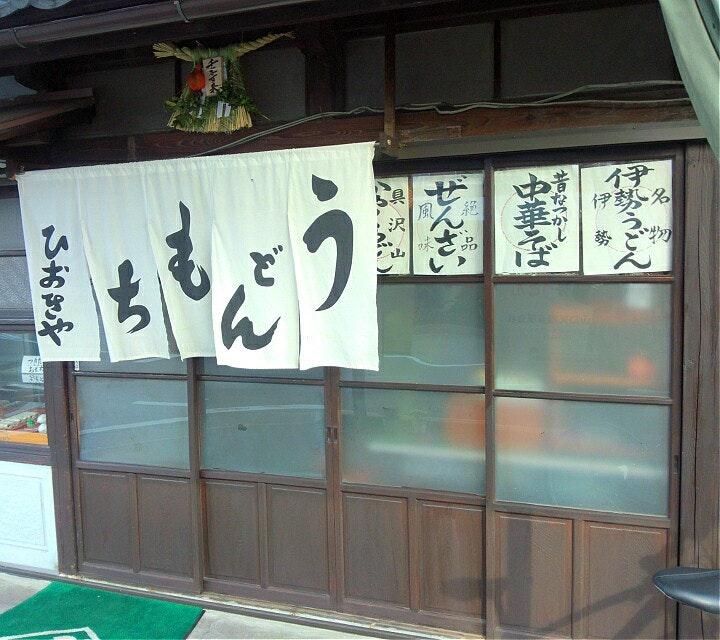 うどん
もち
ひおきや
名物
伊勢うどん
伊勢
昔なつかし
中華そば
絶品
ぜんざい
風味
具沢山